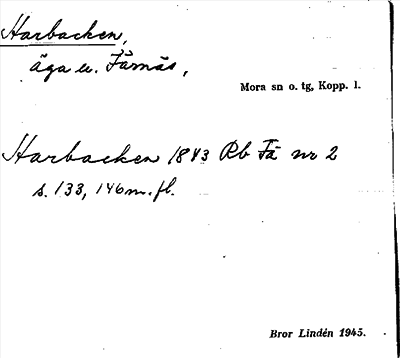 Harbacken,
äga u. Färnäs,
Mora sn o. tg, Kopp. l.
Harbacken 1843 Rb Fä nr 2
s. 133, 146 m. fl.
Bror Lindén 1945.